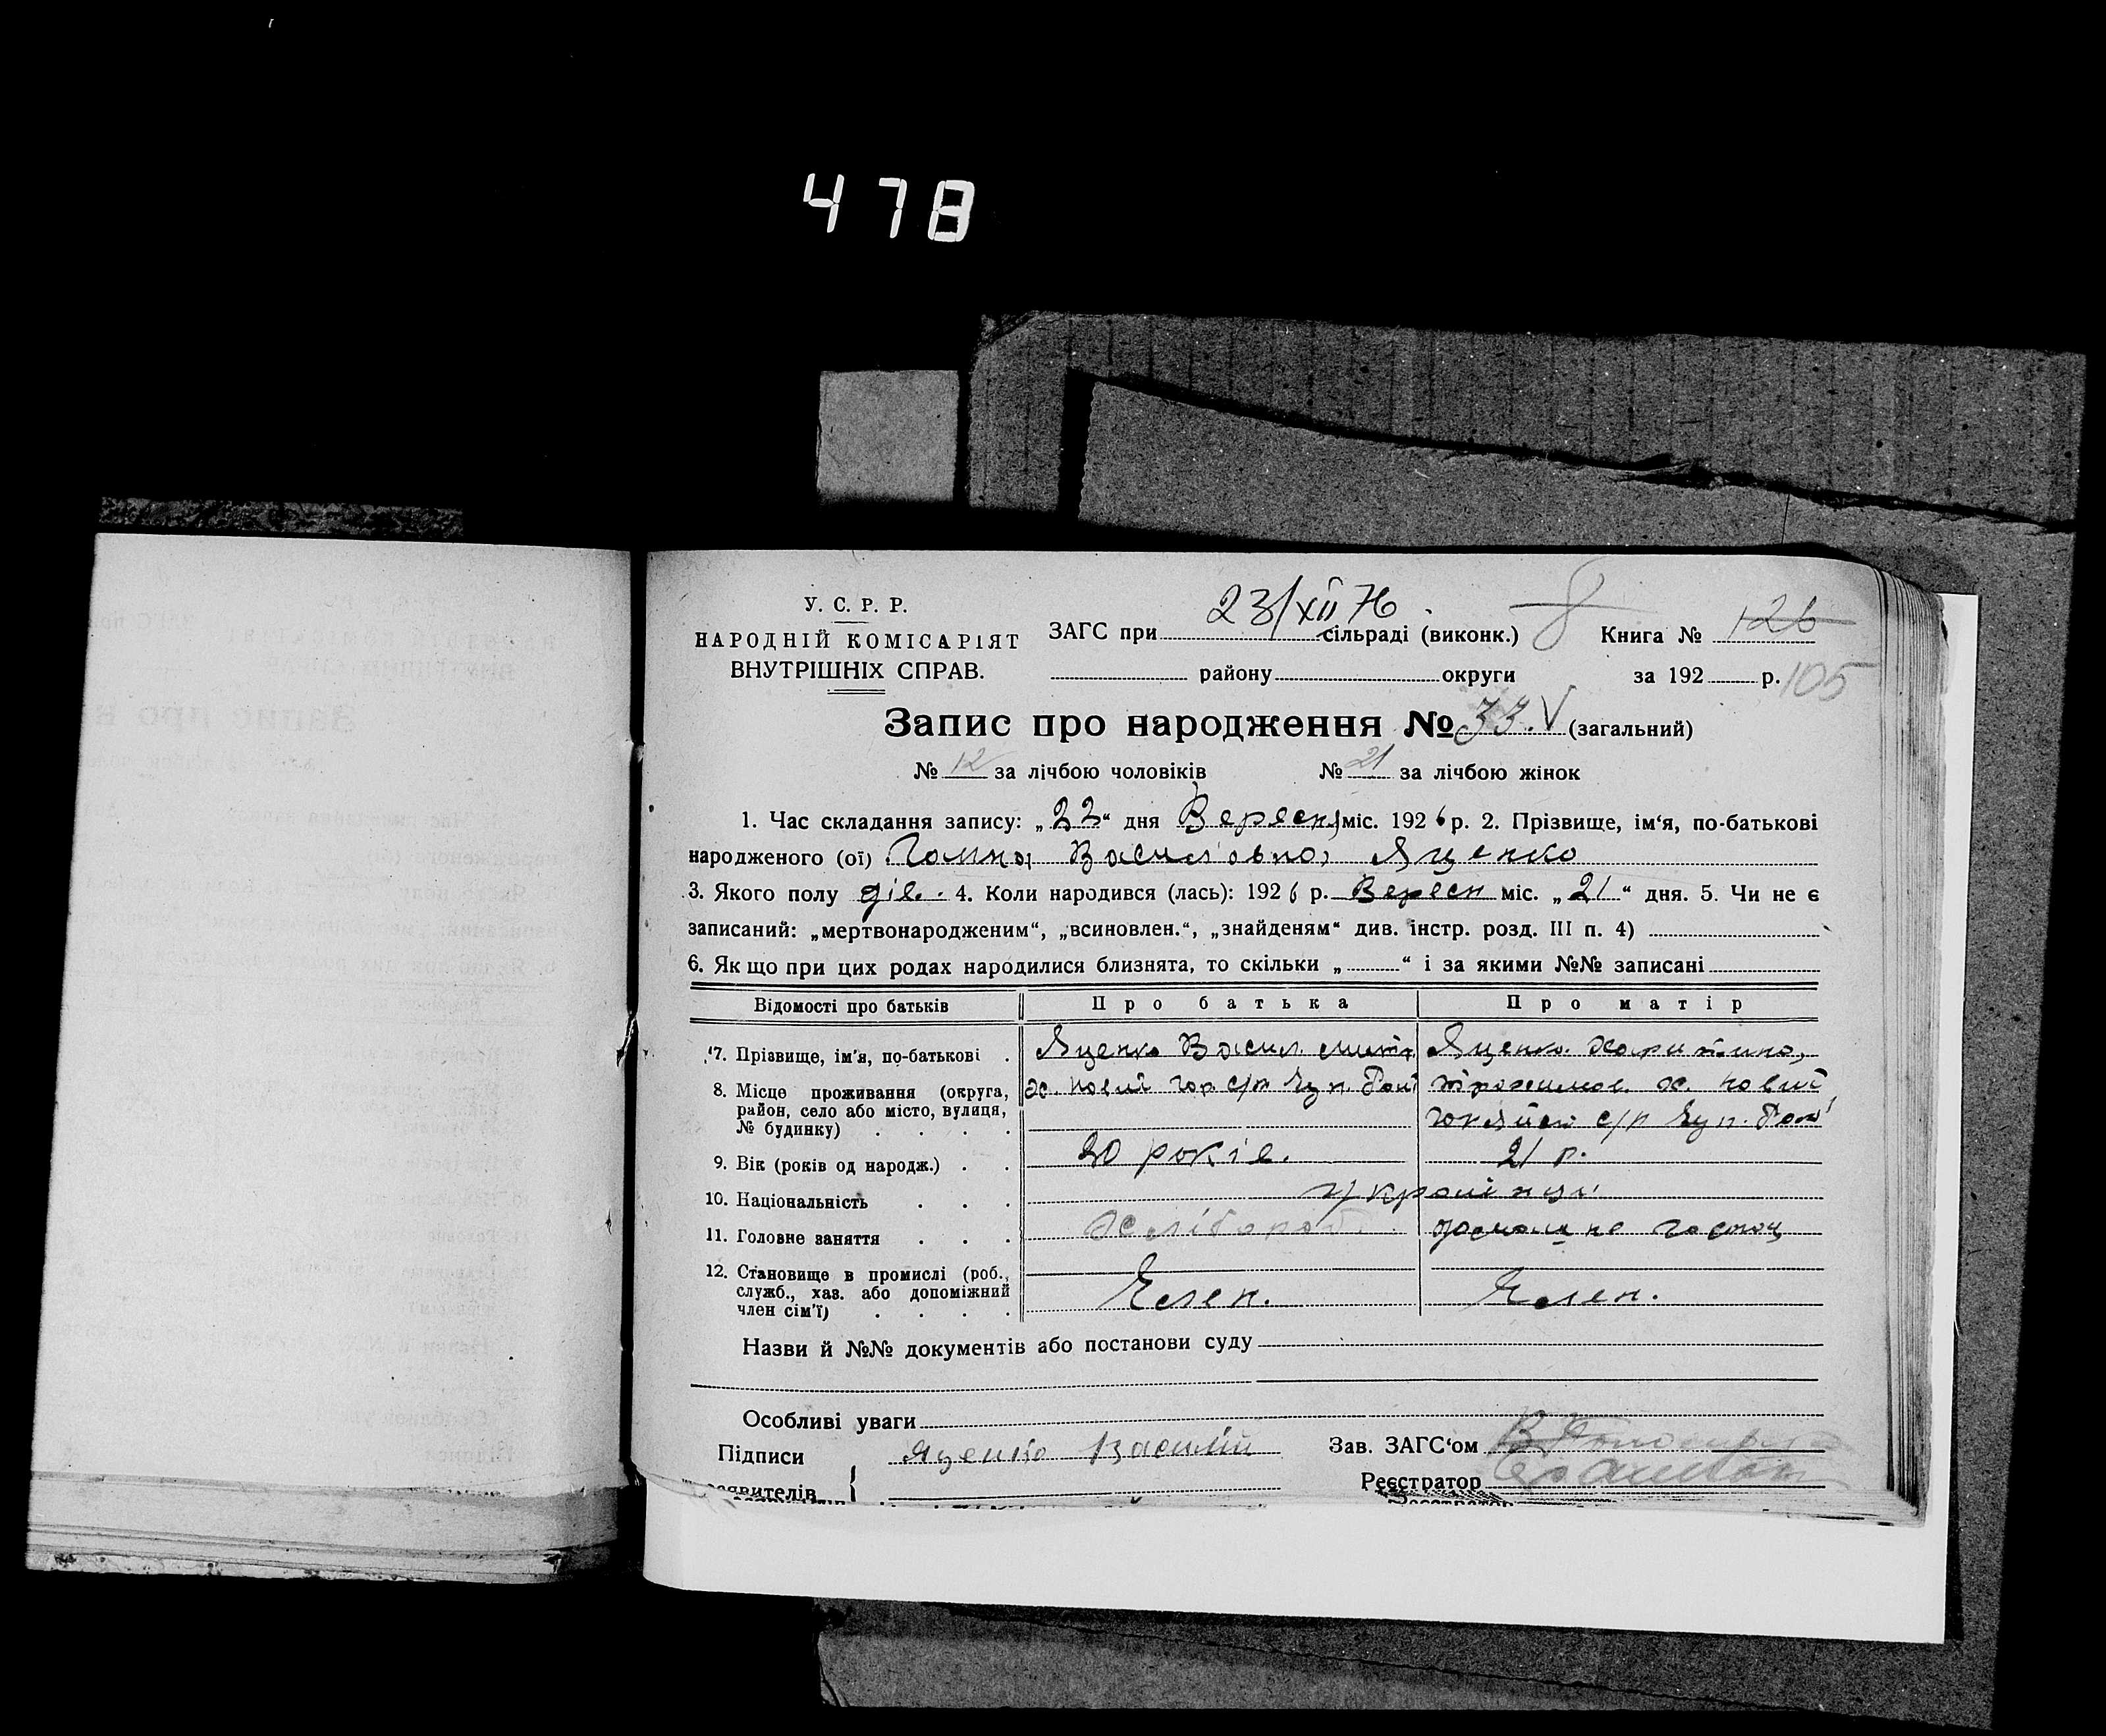 478
У. С. Р. Р.
НАРОДНІЙ КОМІСАРІЯТ
ВНУТРІШНІХ СПРАВ.
23/XII 76
ЗАГС при сільраді (виконк.) 8 Книга № 126
району округи за 192 р. 105
Запис про народження № 33. V (загальний)
№ 12 за лічбою чоловіків № 21 за лічбою жінок
1. Час складання запису: „22“ дня Вересня міс. 1926 р. 2. Прізвище, ім‘я, по-батькові
народженого (ої) Ганна Васил'овна Яценко
3. Якого полу дів. 4. Коли народився (лась): 1926 р. Вересн міс. „21“ дня. 5. Чи не є
записаний: „мертвонародженим“, „всиновлен.“, „знайденям“ див. інстр. розд. III п. 4)
6. Як що при цих родах народилися близнята, то скільки „ “ і за якими №№ записані
Відомості про батьків Про батька Про матір
7. Прізвище, ім'я, по-батькові Яценко Васил Яценко Харитина
8. Місце проживання (округа, х. новий с/р х. новий
район, село або місто, вулиця, с/р
№ будинку)
9. Вік (років од народж.) 20 років. 21 р.
10. Національність українці
11. Головне заняття Хлібороб. домашнє господ
12. Становище в промислі (роб.,
служб., хаз. або допоміжний Член. Член.
член сім'ї)
Назви й №№ документів або постанови суду
Особливі уваги
Підписи Яценко Василій Зав. ЗАГС‘ом
заявителів Реєстратор